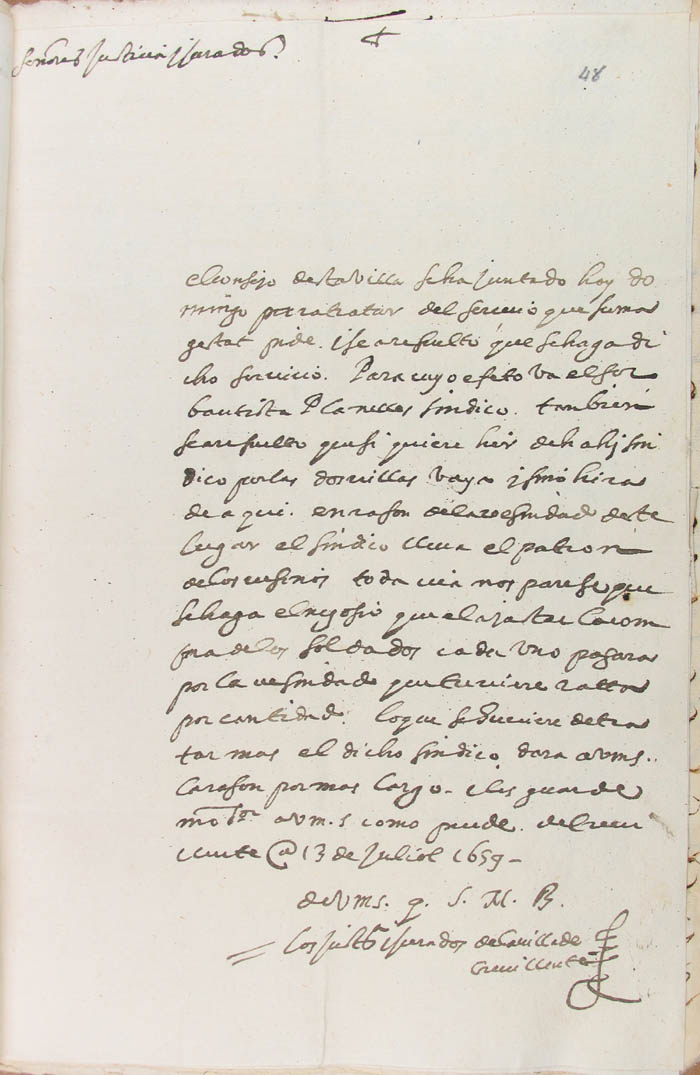 señores justicia i jurados.
48
el consejo desta villa se ha juntado hoy do
mingo para tratar del servicio que su ma
gestat pide. i se a resuelto que se haga di
cho servicio. Para cuyo efeto va el sor
bautista Planelles sindico. tambien
se a resuelto que si quiere hir de hahj sin
dico por las dos villas vaya i sino hira
de aqui. en rason de la vesindad deste
lugar el sindico lleva el patron
de los vesinos toda via nos parese que
se haga el negosio que el ajustar la
de los soldados cada uno pagara
por la vesindad que tuviere ratta
por cantidad. lo que se huviere de tra
tar mas el dicho sindico dara a vms.
la rason por mas largo. i les guarde
a vm.s como puede. de Crevi
llente @ 13 de Juliol 1659
de vms. q. S. M. B.
los justa i jurados de la villa de
Crevillente